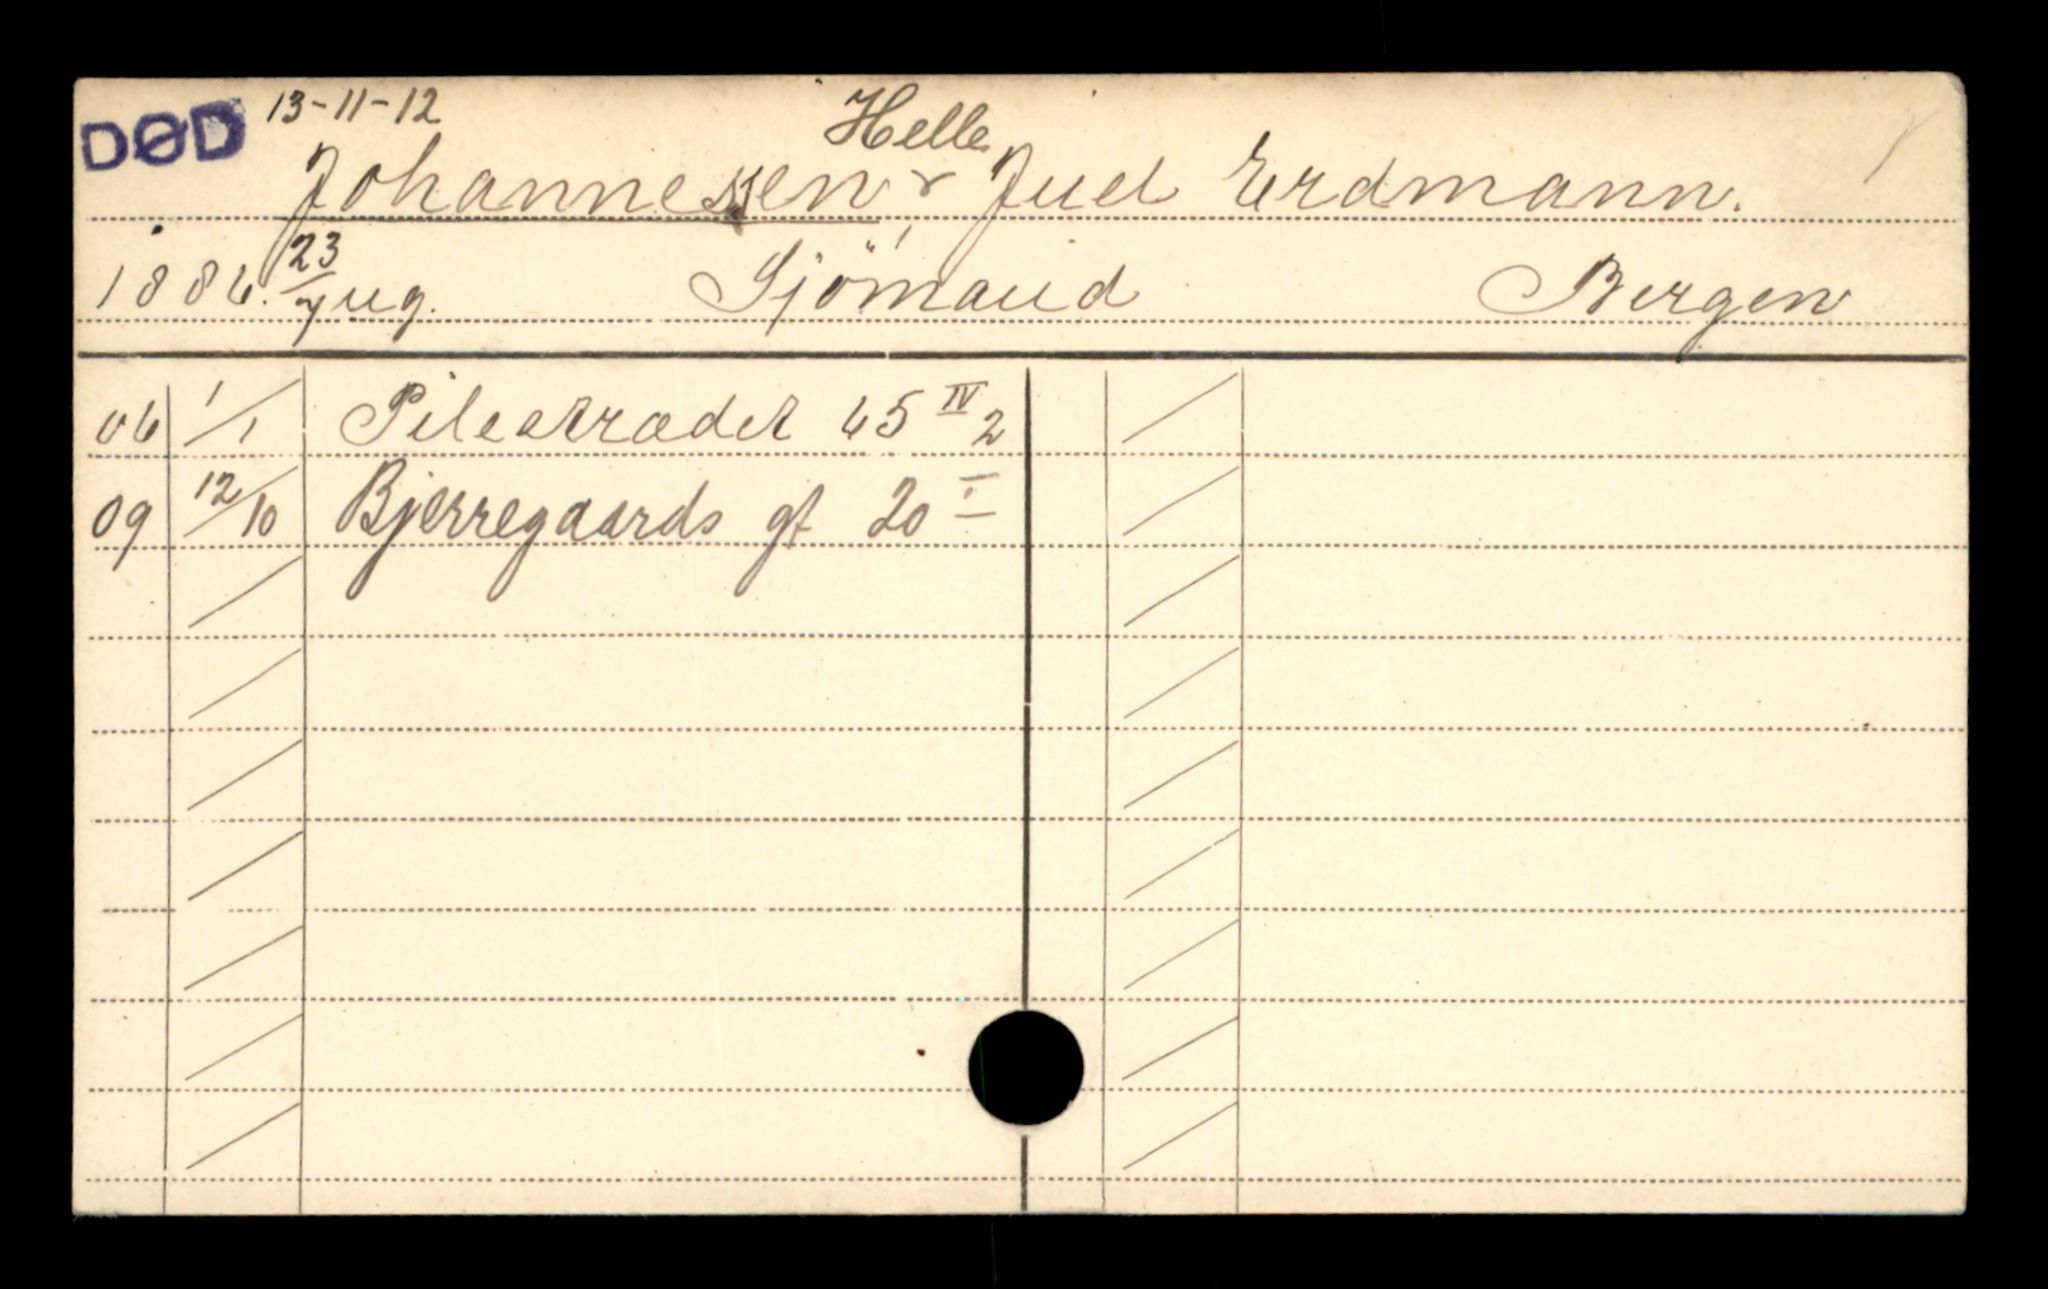 DØD 13-11-12
Helle
Johannesen, Juel Erdmann.
1886. 23/7 ug. Sjömand Bergen
06 1/1 Pilestrædet 45 IV 2
09 12/10 Bjerregaards gt 20 I